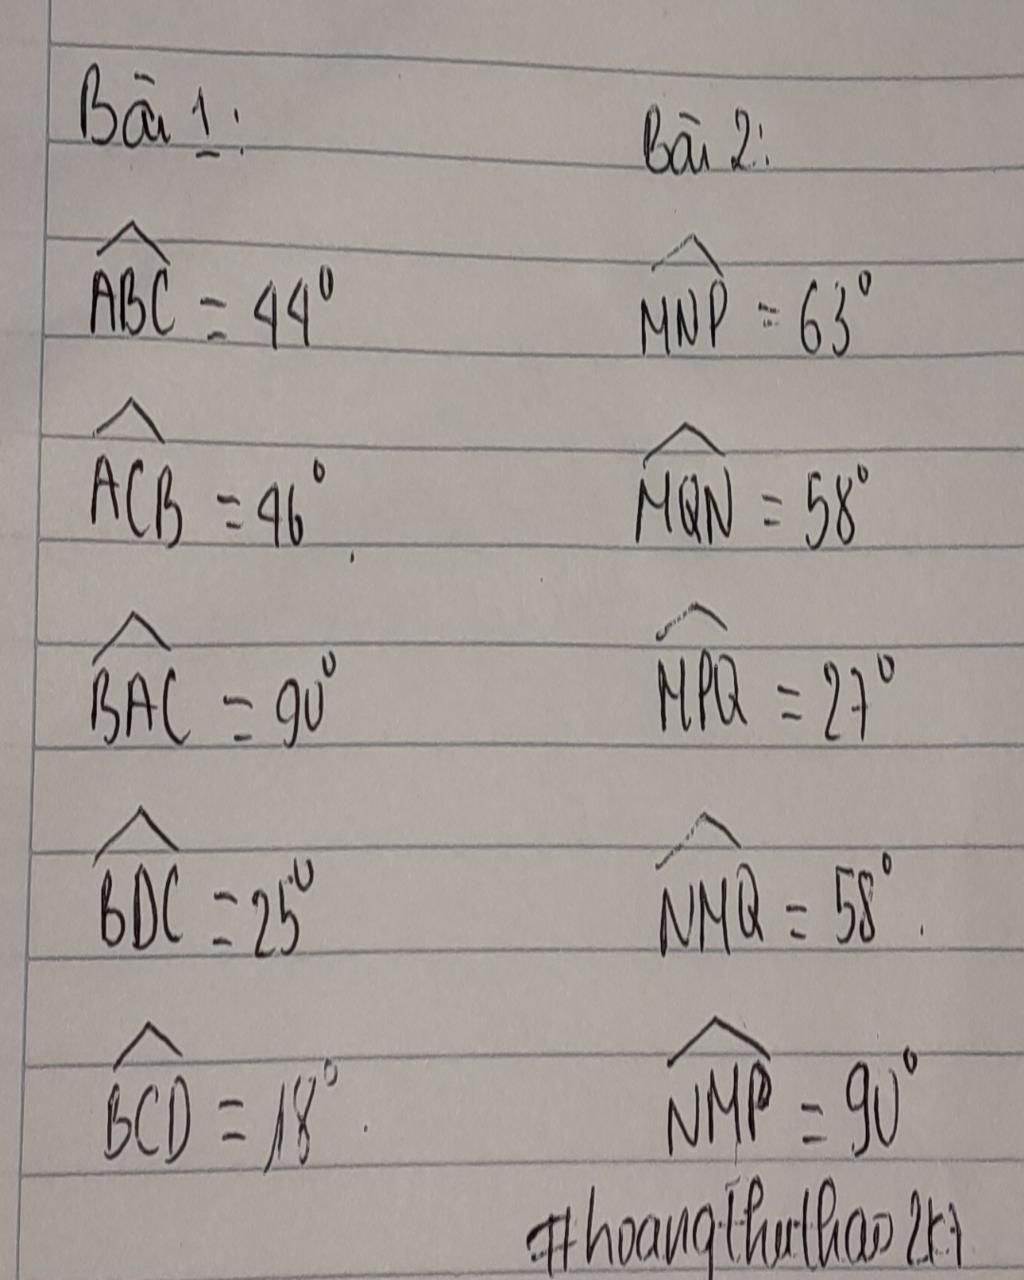 Bài 1:
ABC = 44°
ACB = 46°
BAC = 90°
BDC = 25°
BCD = 18°.
Bài 2:
MNP = 63°
MQN = 58°
MPQ = 27°
NMQ = 58°.
NMP = 90°
#hoangthuthao2k7